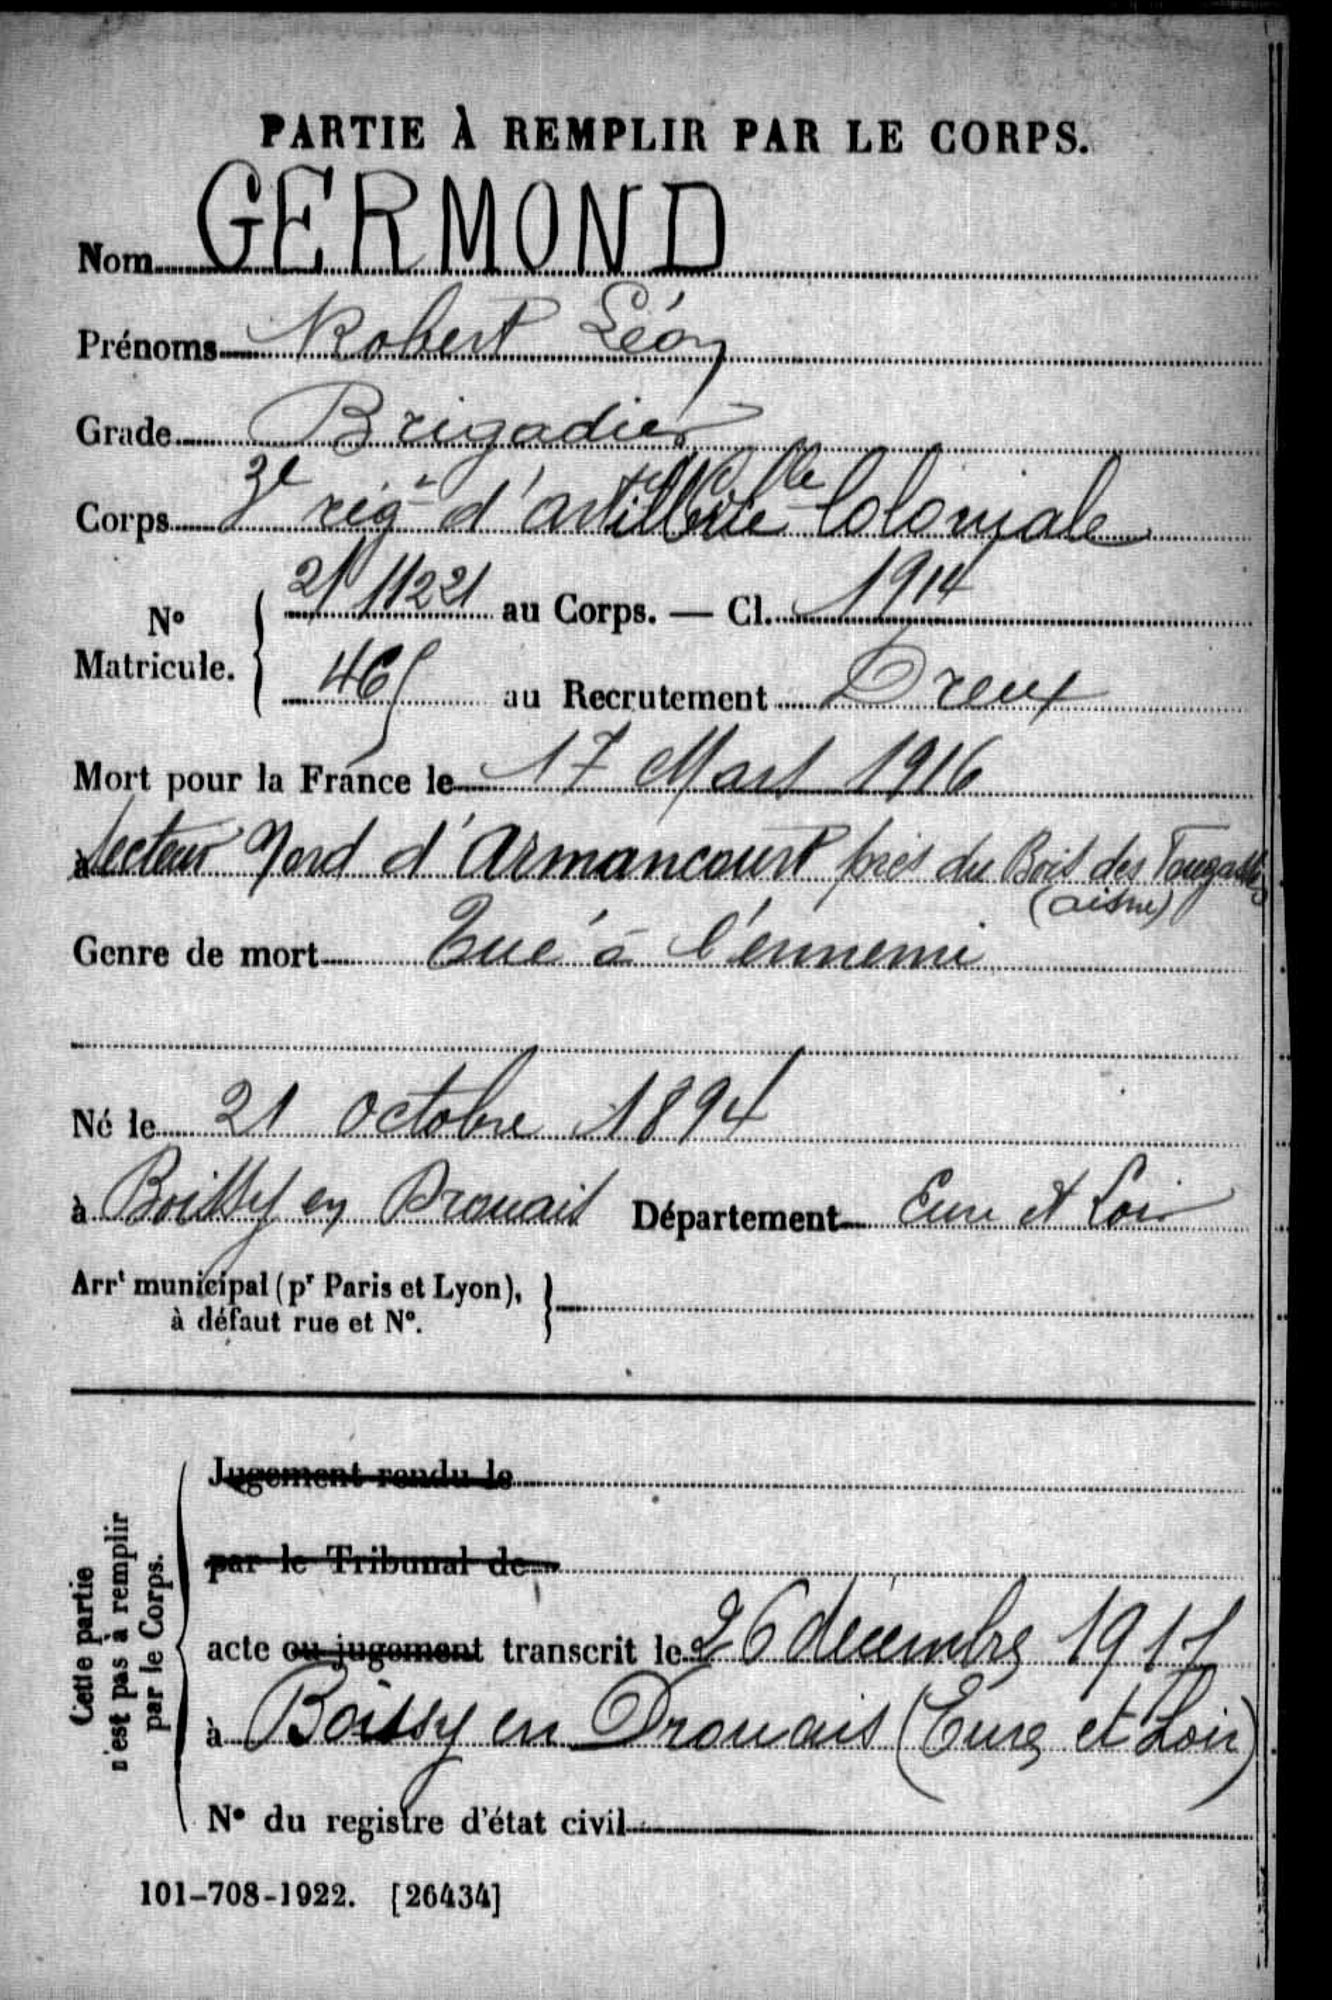 PARTIE À REMPLIR PAR LE CORPS.
Nom GERMOND
Prénoms Robert Léon
Grade Brigadier
Corps 3e rég-t d'artillerie Coloniale
No Matricule. 21 11221 au Corps. — Cl. 1914
465 au Recrutement Dreux
Mort pour la France le 17 Mars 1916
à secteur Nord d'Armancourt près du Bois des
(aisne)
Genre de mort Tué à l'ennemi
Né le 21 octobre 1894
à Boissy en Drouais Département Eure et Loir
Arrt municipal (pr Paris et Lyon),
à défaut rue et No.
Cette partie
n'est pas à remplir
par le Corps.
Jugement rendu le
par le Tribunal de
acte ou jugement transcrit le 26 décembre 1917
à Boissy en Drouais (Eure et Loir)
No du registre d'état civil
101-708-1922. [26434]